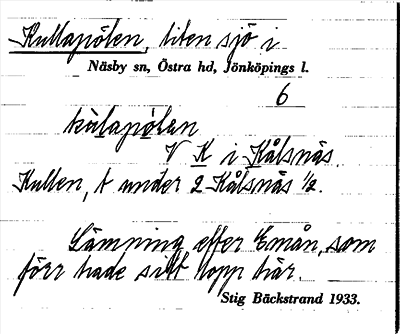 Kullapölen, liten sjö i
Näsby sn, Östra hd, Jönköpings l.
6
kùlapölən
V K i Kålsnäs.
Kullen, t under 2 Kålsnäs 1/2.
Lämning efter Emån, som
förr hade sitt lopp här.
Stig Bäckstrand 1933.